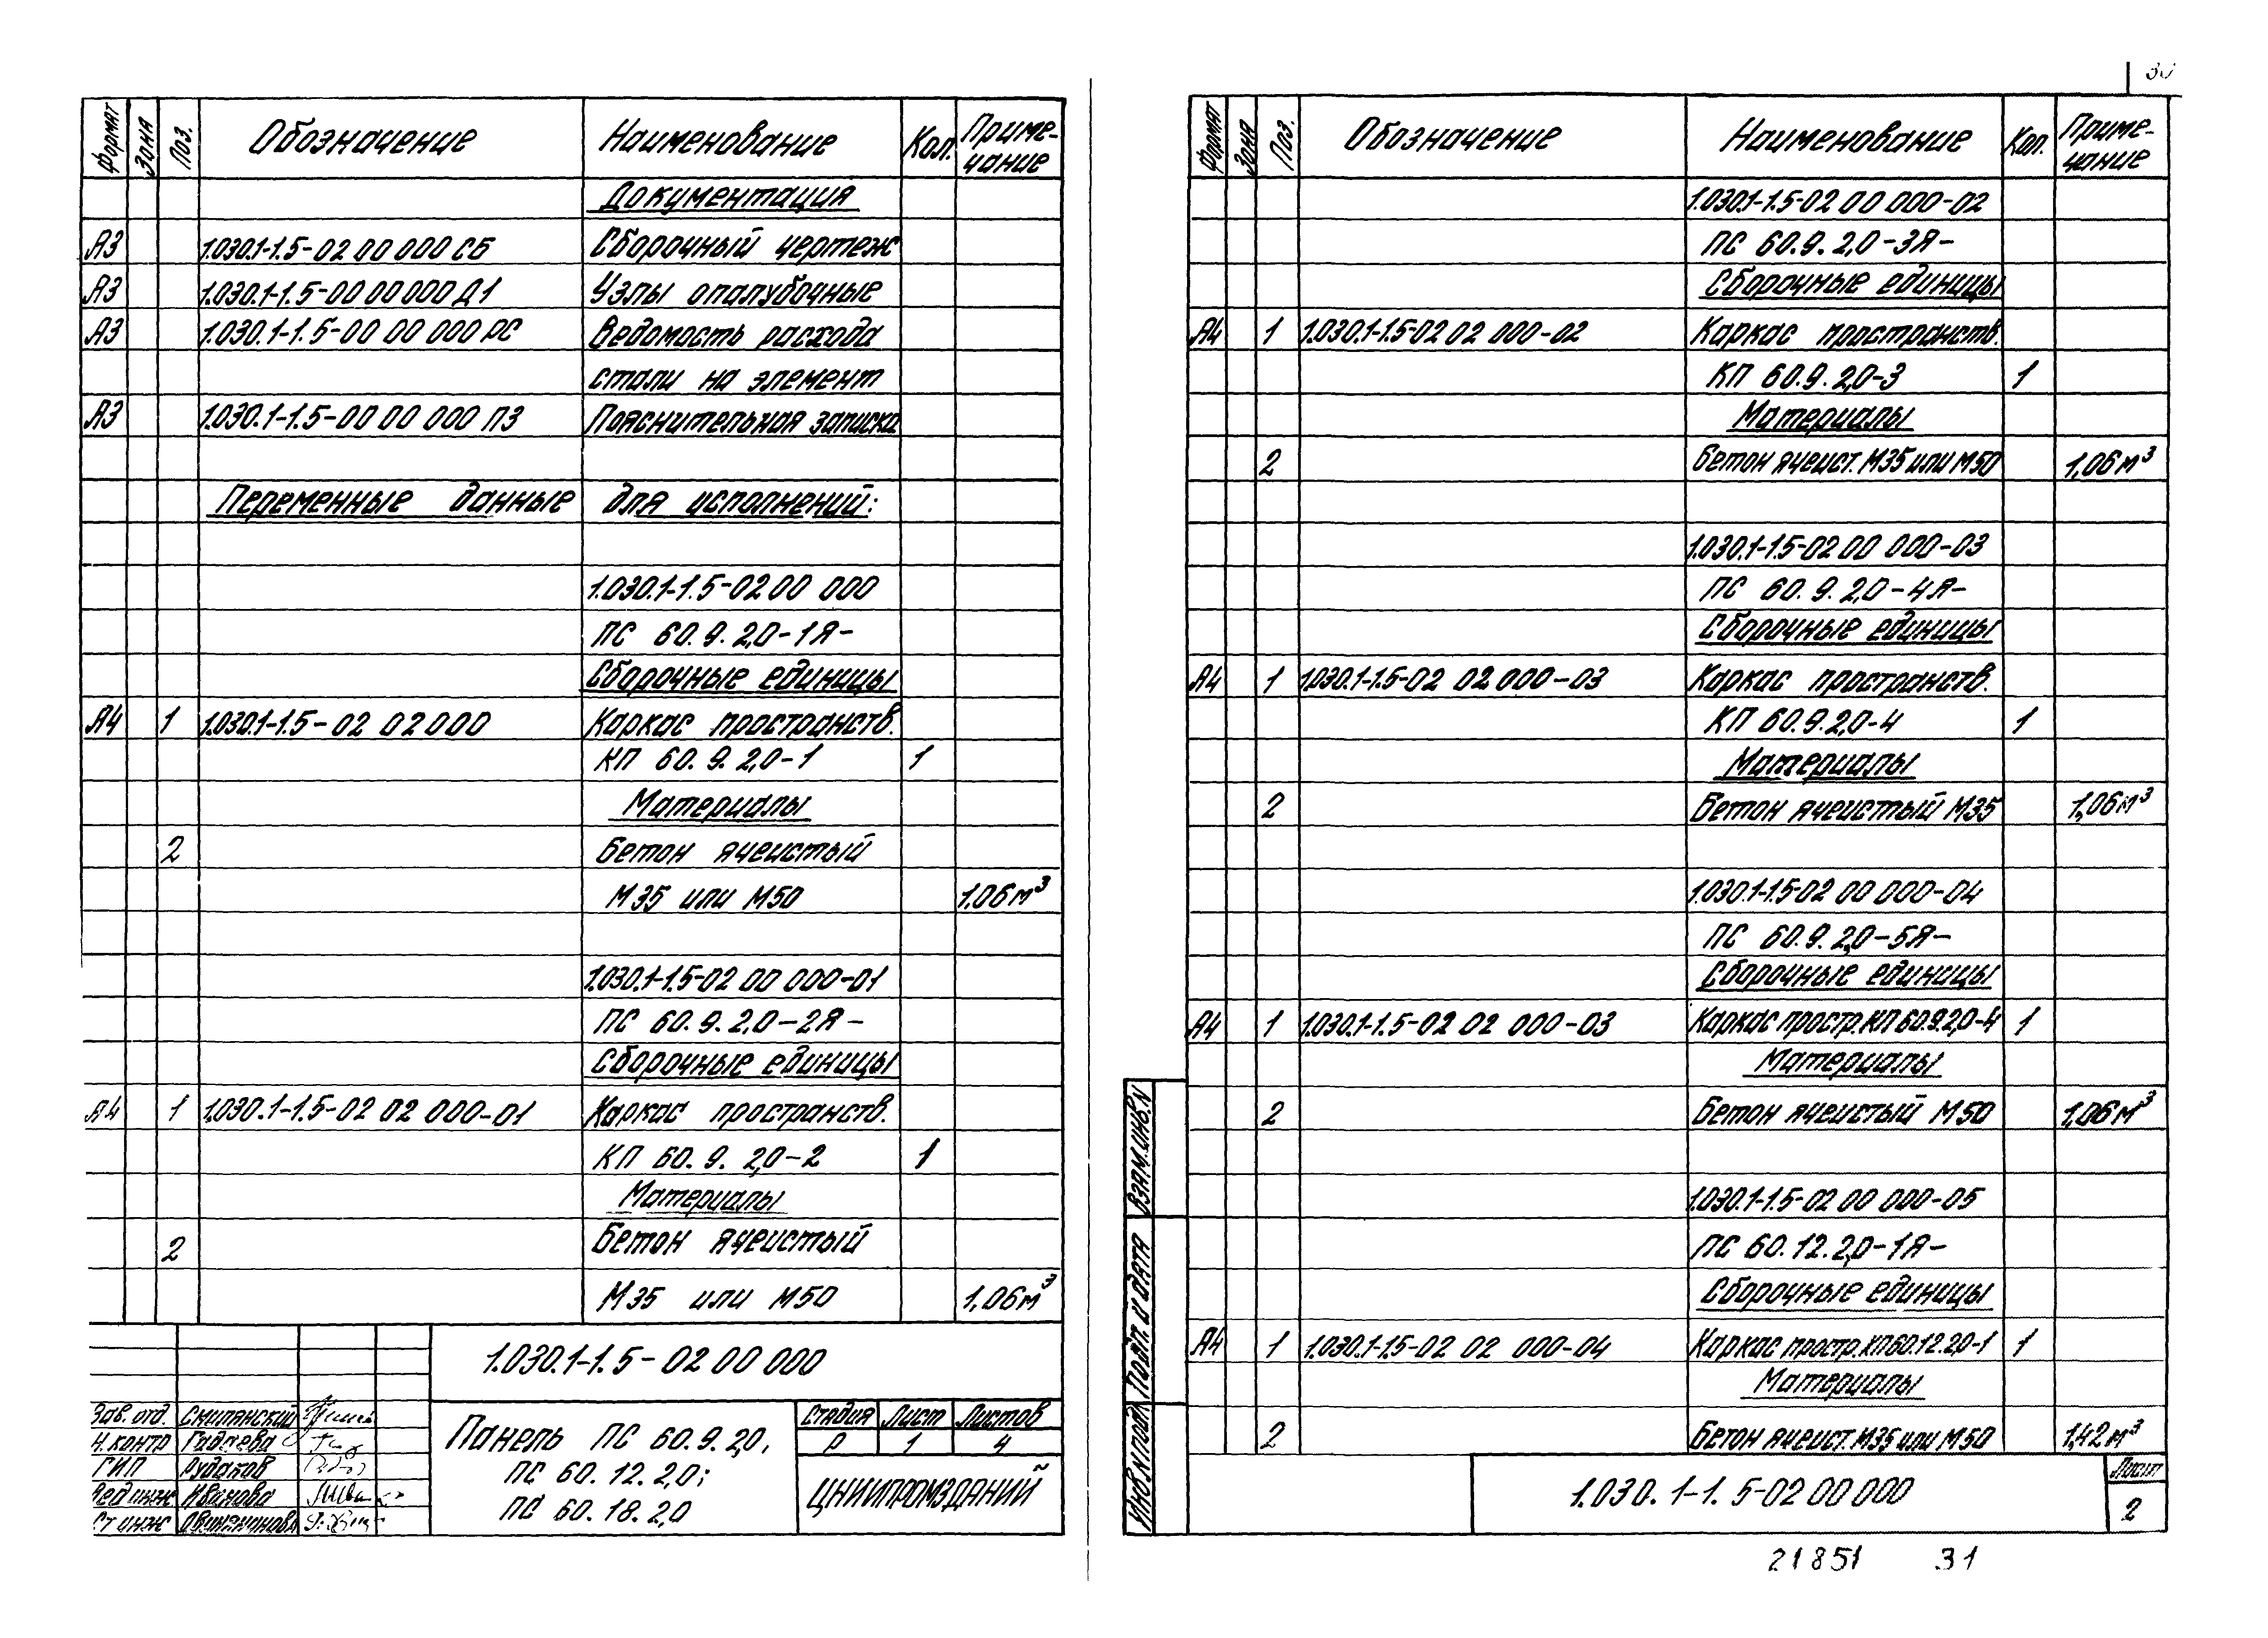 Формат Зона Поз. Обозначение Наименование Кол. Приме-
чание
Документация
А3 1.030.1-1.5-02 00 000 СБ Сборочный чертеж
А3 1.030.1-1.5-00 00 000 Д1 Узлы опалубочные
А3 1.030.1-1.5-00 00 000 РС Ведомость расхода
стали на элемент
А3 1.030.1-1.5-00 00 000 ПЗ Пояснительная записка
Переменные данные для исполнений:
1.030.1-1.5-02 00 000
ПС 60.9.2,0-1Я-
Сборочные единицы
А4 1 1.030.1-1.5-02 02 000 Каркас пространств.
КП 60.9.2,0-1 1
Материалы
2 Бетон ячеистый
М35 или М50 1,06м³
1.030.1-1.5-02 00 000-01
ПС 60.9.2,0-2Я-
Сборочные единицы
А4 1 1.030.1-1.5-02 02 000-01 Каркас пространств.
КП 60.9.2,0-2 1
Материалы
2 Бетон ячеистый
М35 или М50 1,06м³
1.030.1-1.5-02 00 000
Зав. отд. Смилянский
Н.контр Гадаева
ГИП Рудаков
Вед инж Иванова
Ст инж
Панель ПС 60.9.2,0,
ПС 60.12.2,0;
ПС 60.18.2,0
Стадия Лист Листов
Р 1 4
ЦНИИПРОМЗДАНИЙ
30
Формат Зона Поз. Обозначение Наименование Кол. Приме-
чание
1.030.1-1.5-02 00 000-02
ПС 60.9.2,0-3Я-
Сборочные единицы
А4 1 1.030.1-1.5-02 02 000-02 Каркас пространств.
КП 60.9.2,0-3 1
Материалы
2 Бетон ячеист. М35 или М50 1,06м³
1.030.1-1.5-02 00 000-03
ПС 60.9.2,0-4Я-
Сборочные единицы
А4 1 1.030.1-1.5-02 02 000-03 Каркас пространств.
КП 60.9.2,0-4 1
Материалы
2 Бетон ячеистый М35 1,06м³
1.030.1-1.5-02 00 000-04
ПС 60.9.2,0-5Я-
Сборочные единицы
А4 1 1.030.1-1.5-02 02 000-03 Каркас простр. КП 60.9.2,0-4 1
Материалы
2 Бетон ячеистый М50 1,06м³
1.030.1-1.5-02 00 000-05
ПС 60.12.2,0-1Я-
Сборочные единицы
А4 1 1.030.1-1.5-02 02 000-04 Каркас простр. КП 60.12.2,0-1 1
Материалы
2 Бетон ячеист. М35 или М50 1,42м³
Взам.инв.N
Подп. и дата
Инв.N подл
1.030.1-1.5-02 00 000
Лист
2
21851 31